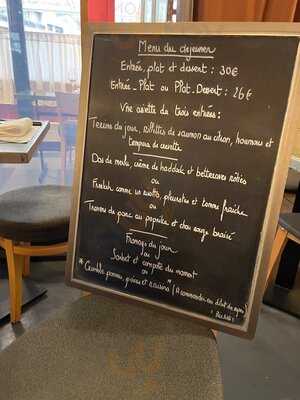 Menu du déjeuner
Entrée, plat et dessert : 30€
Entrée - Plat ou Plat - Dessert : 26€
Une assiette du trois entrées :
Terrine du jour, rillettes de saumon au citron, houmous et
tempura de crevette
Dos de merlu, crème de haddock et betteraves rôties
ou
comme un risotto, pleurotes et tomme fraîche
ou
de porc au paprika et chou rouge braisé
Fromage du jour
ou
Sorbet et compote du moment
ou
* Crumble pomme, poires et raisins * (A commander en début de repas)